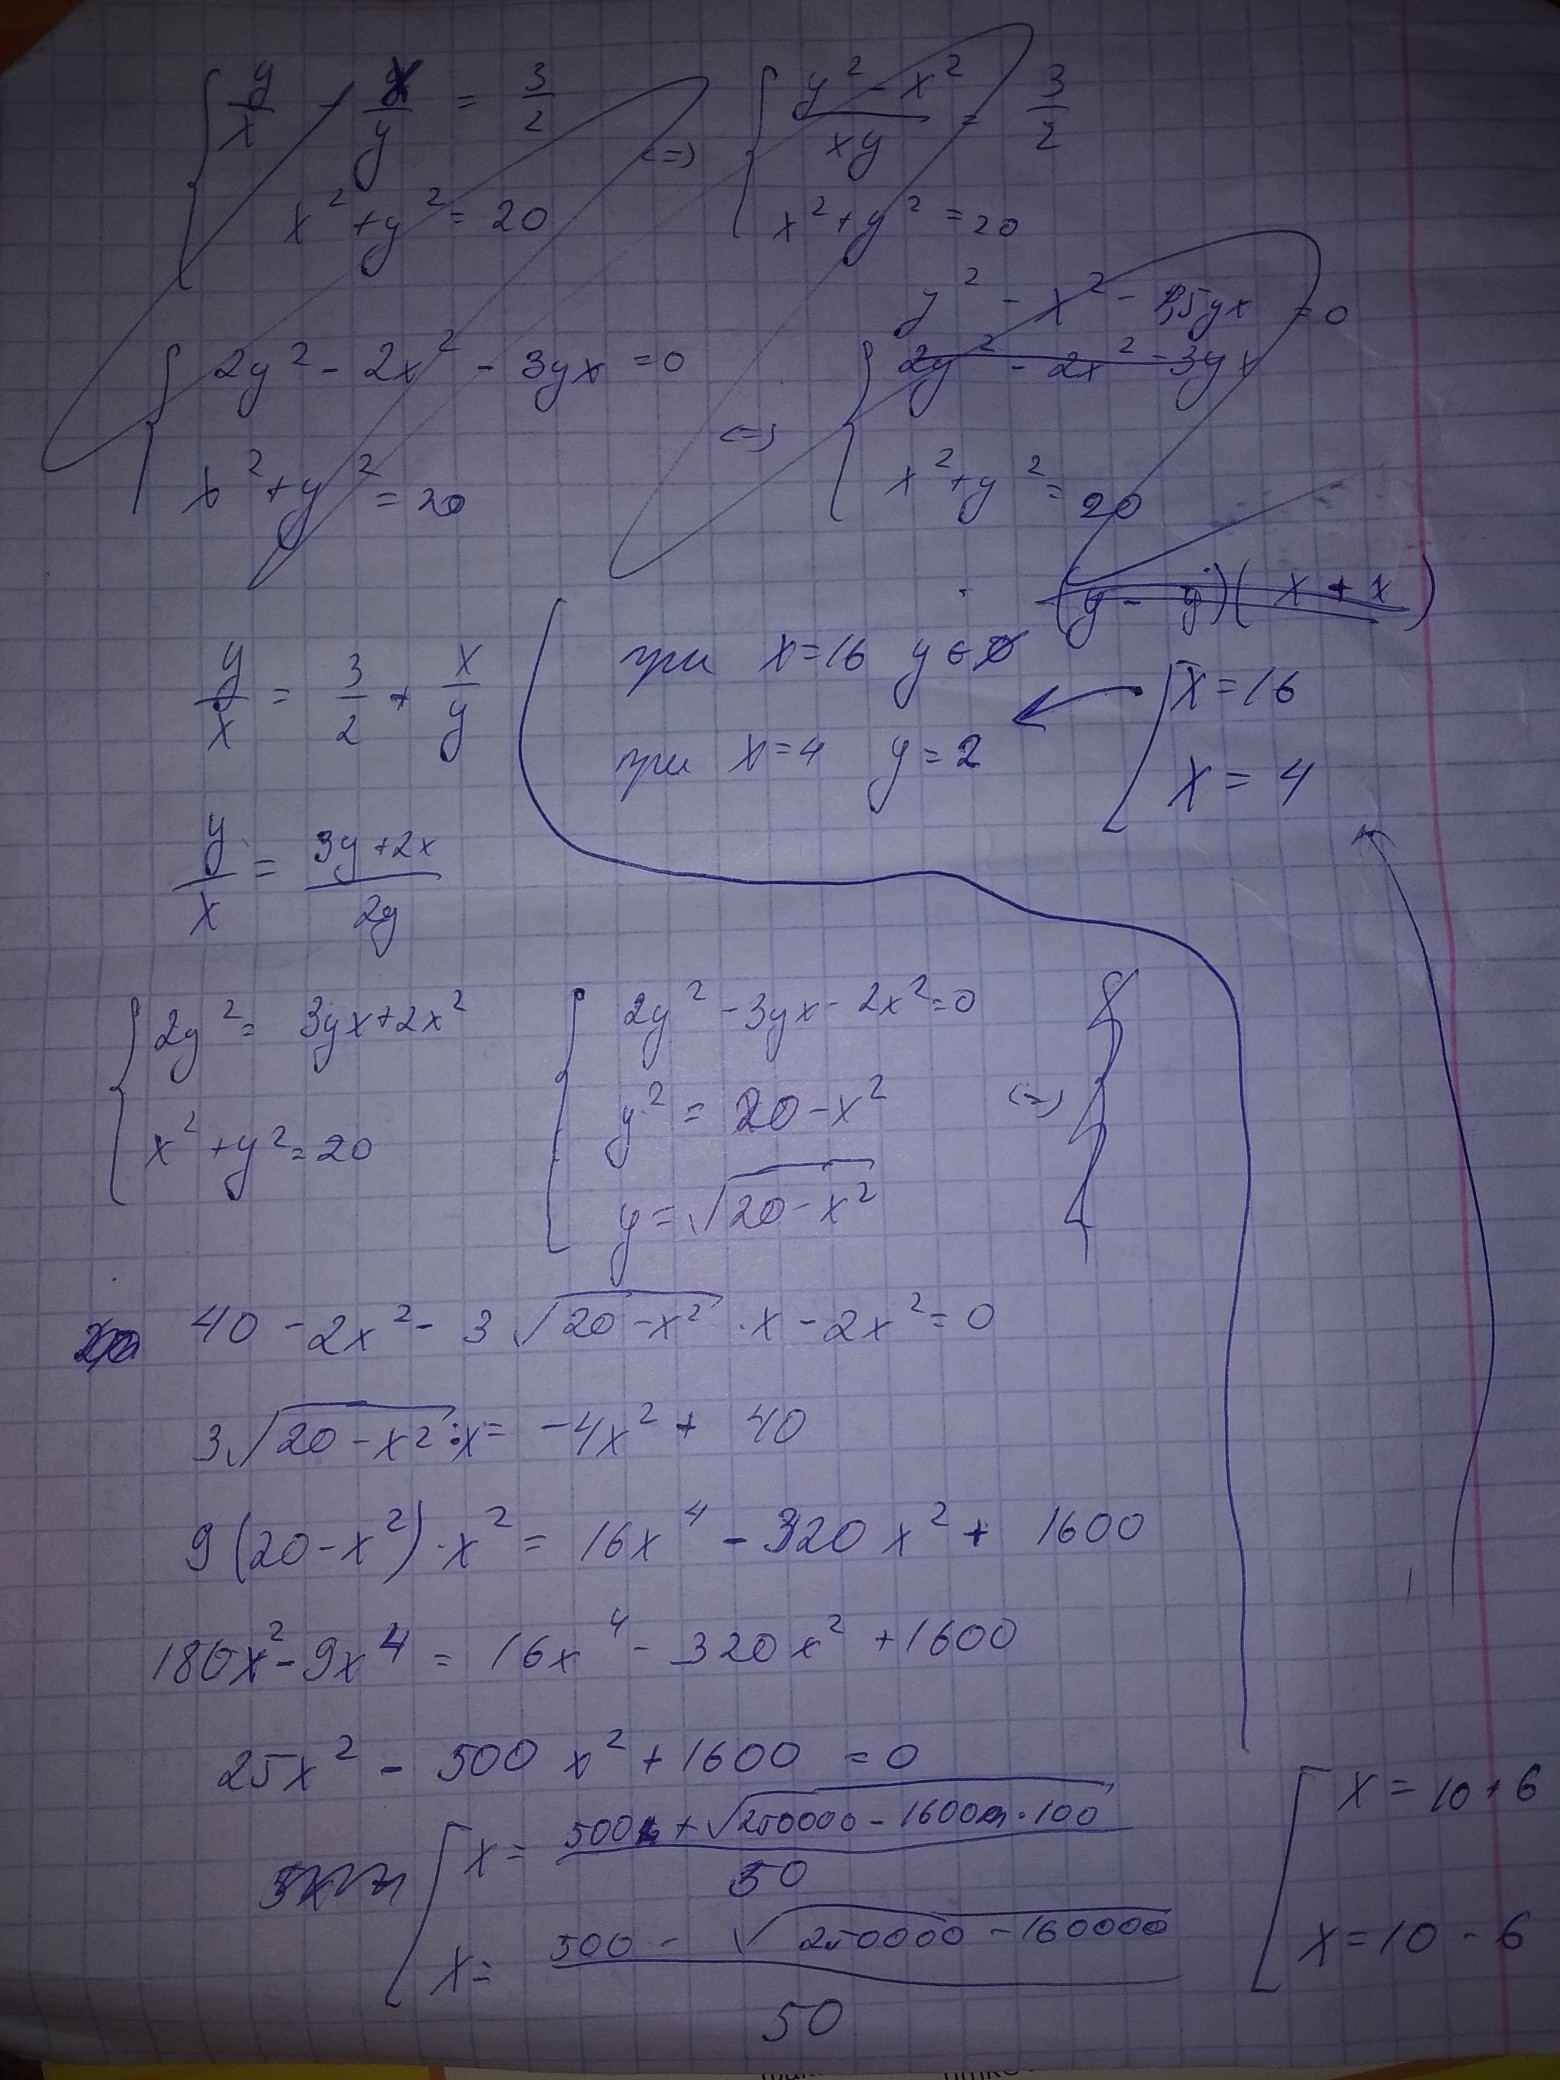 { y/x - x/y = 3/2 <=> { (y² - x²)/xy = 3/2
x² + y² = 20
x² + y² = 20
y² - x² - 1,5yx = 0
{ 2y² - 2x² - 3yx = 0 <=> { 2y² - 2x² - 3yx
x² + y² = 20
x² + y² = 20
(y - y)(x + x)
y/x = 3/2 + x/y
при x = 16 y ∈ ∅
[ x = 16
при x = 4 y = 2
x = 4
y/x = (3y + 2x)/2y
{ 2y² = 3yx + 2x²
x² + y² = 20
{ 2y² - 3yx - 2x² = 0
y² = 20 - x² <=>
y = √(20 - x²)
40 - 2x² - 3√(20 - x²) · x - 2x² = 0
3√(20 - x²) · x = -4x² + 40
9(20 - x²) · x² = 16x⁴ - 320x² + 1600
180x² - 9x⁴ = 16x⁴ - 320x² + 1600
25x² - 500x² + 1600 = 0
[ x = (500 + √(250000 - 1600 · 100))/50
x = (500 - √(250000 - 160000))/50
[ x = 10 + 6
x = 10 - 6